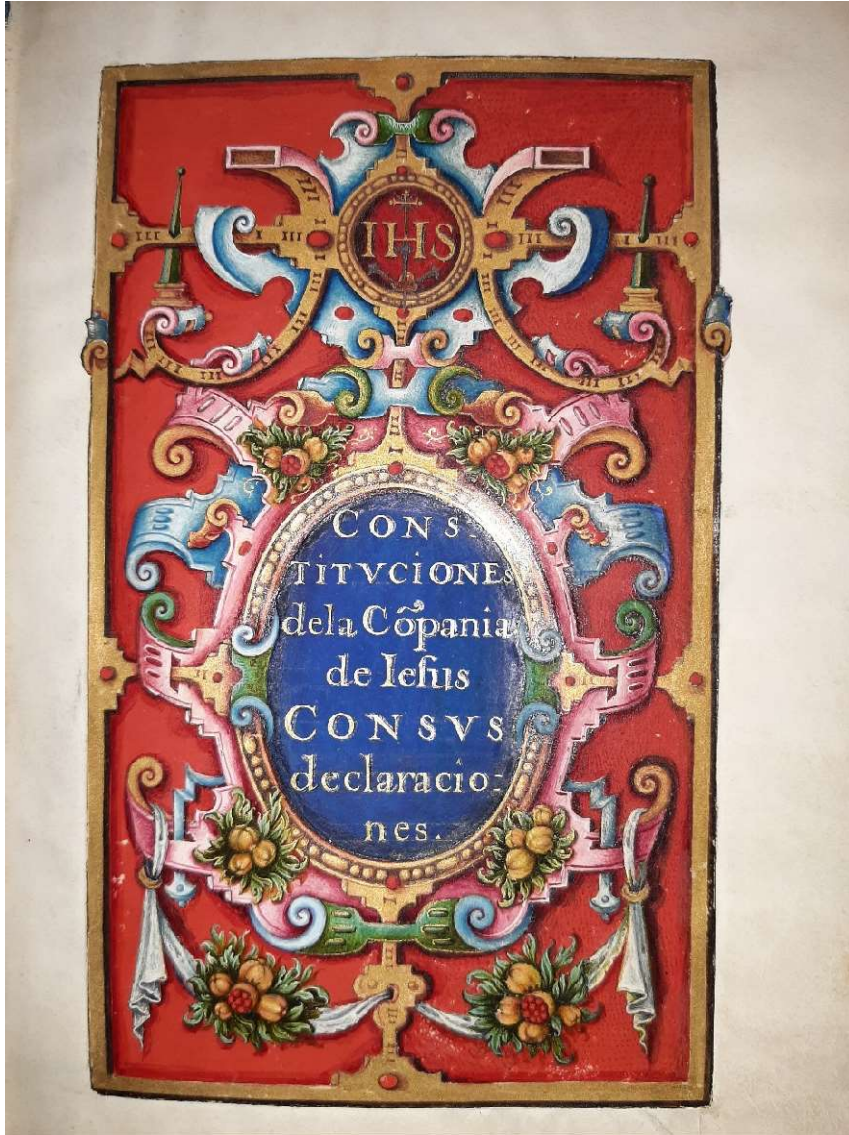 IHS
CONS-
TITVCIONEs
dela Cõpania
de Iesus
CONSVS
declaracio-
nes.